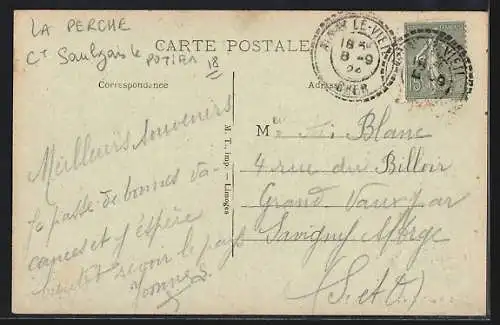 LA PERCHE
Ct Saulzais le POTIER
18
CARTE POSTALE
Correspondance
Adresse
AINAY LE-VIEIL
18
8 -9
24
CHER
15
M. T., imp. - Limoges
Meilleurs souvenirs
Je passe de bonnes va-
cances et j'espère
bientôt revoir le pays
Yonne
Blanc
4 rue du Billoir
Grand Vaux par
Savigny s/Orge
(S et O)